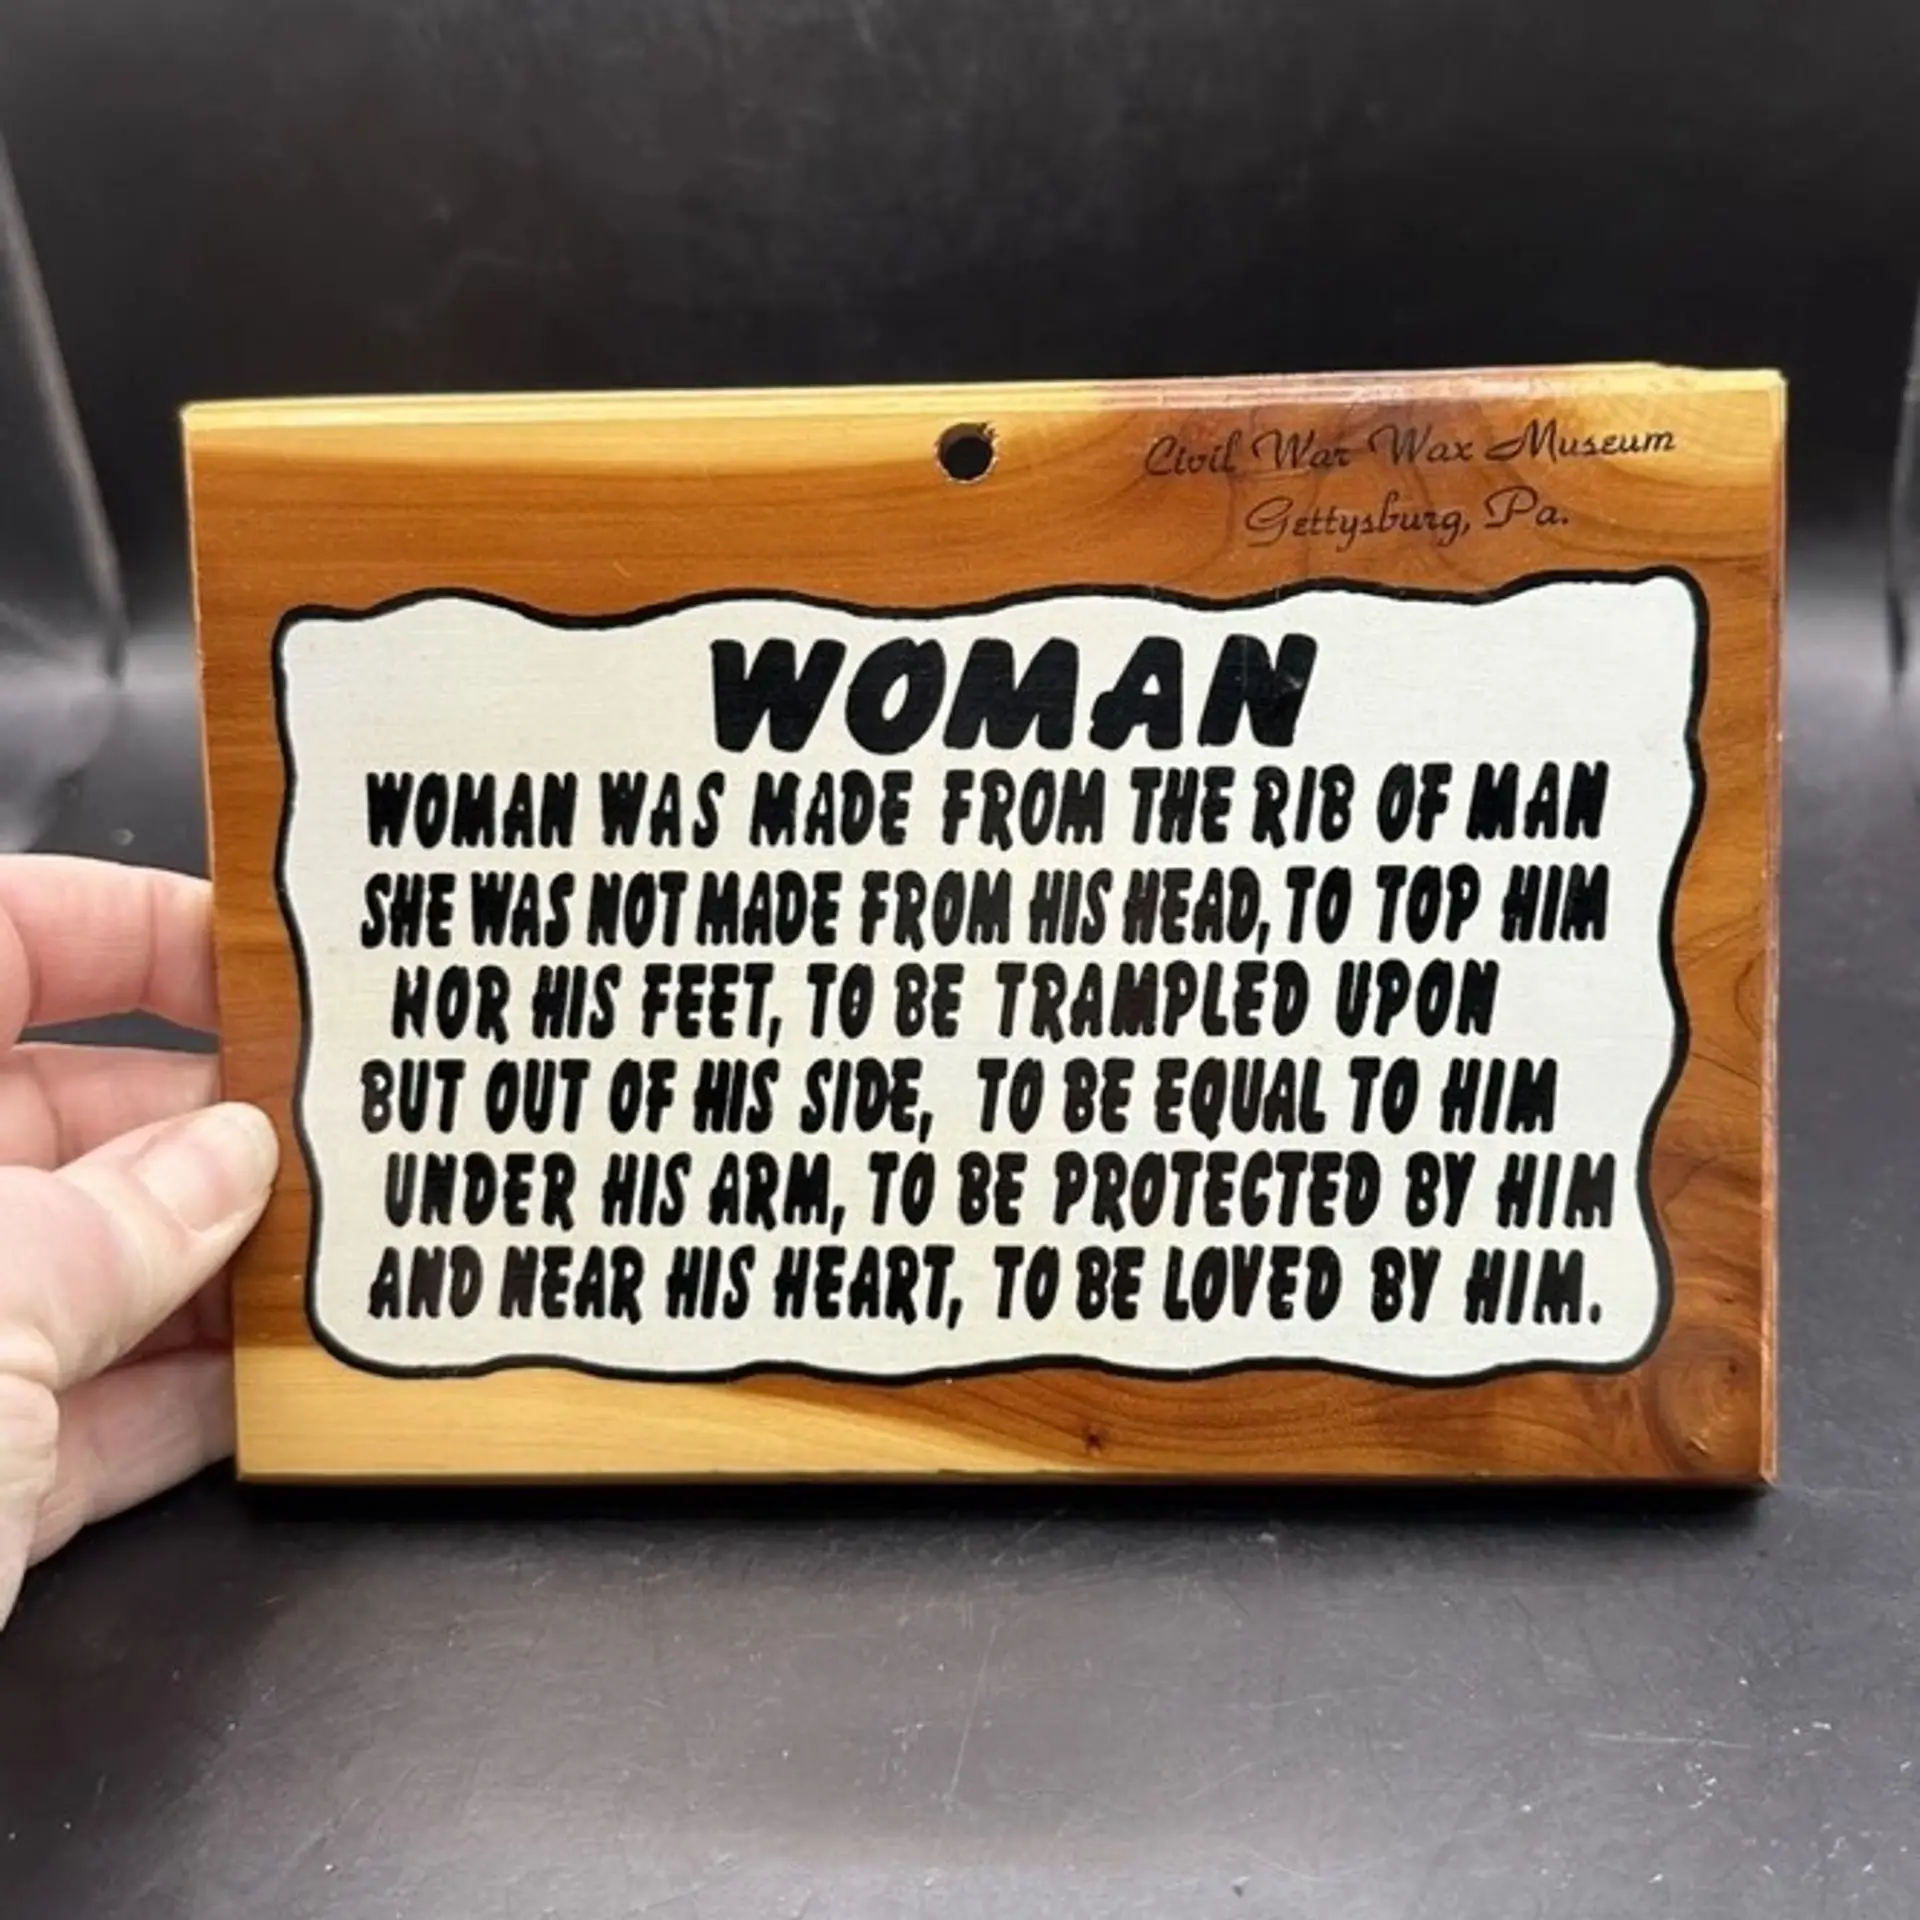 Civil War Wax Museum
Gettysburg, Pa.
WOMAN
WOMAN WAS MADE FROM THE RIB OF MAN
SHE WAS NOT MADE FROM HIS HEAD, TO TOP HIM
NOR HIS FEET, TO BE TRAMPLED UPON
BUT OUT OF HIS SIDE, TO BE EQUAL TO HIM
UNDER HIS ARM, TO BE PROTECTED BY HIM
AND NEAR HIS HEART, TO BE LOVED BY HIM.